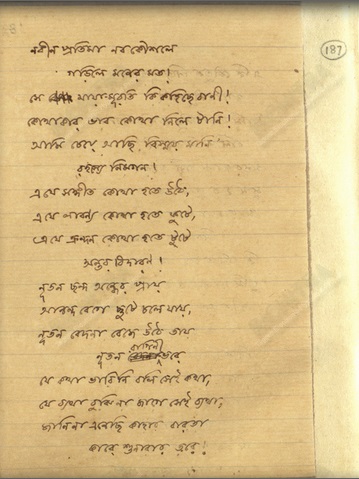 187
নবীন প্রতিমা নব কৌশলে
গড়িলে মনের মত!
সে মায়ামুরতি কি কহিছে বাণী!
কোথাকার ভাব কোথা নিলে টানি!
আমি চেয়ে আছি বিস্ময় মানি
রহস্যে নিমগন!
এ যে সঙ্গীত কোথা হতে উঠে,
এ যে লাবণ্য কোথা হতে ফুটে,
এ যে ক্রন্দন কোথা হতে টুটে
অন্তর বিদারণ!
নূতন ছন্দ অন্ধের প্রায়
আনন্দ বেগে ছুটে চলে যায়,
নূতন বেদনা বেজে উঠে তায়
নূতন রাগিণী ভরে
যে কথা ভাবিনি বলি সেই কথা,
যে ব্যথা বুঝিনা জাগে সেই ব্যথা,
জানিনা এনেছি কাহার বারতা
কারে শুনাবার তরে!